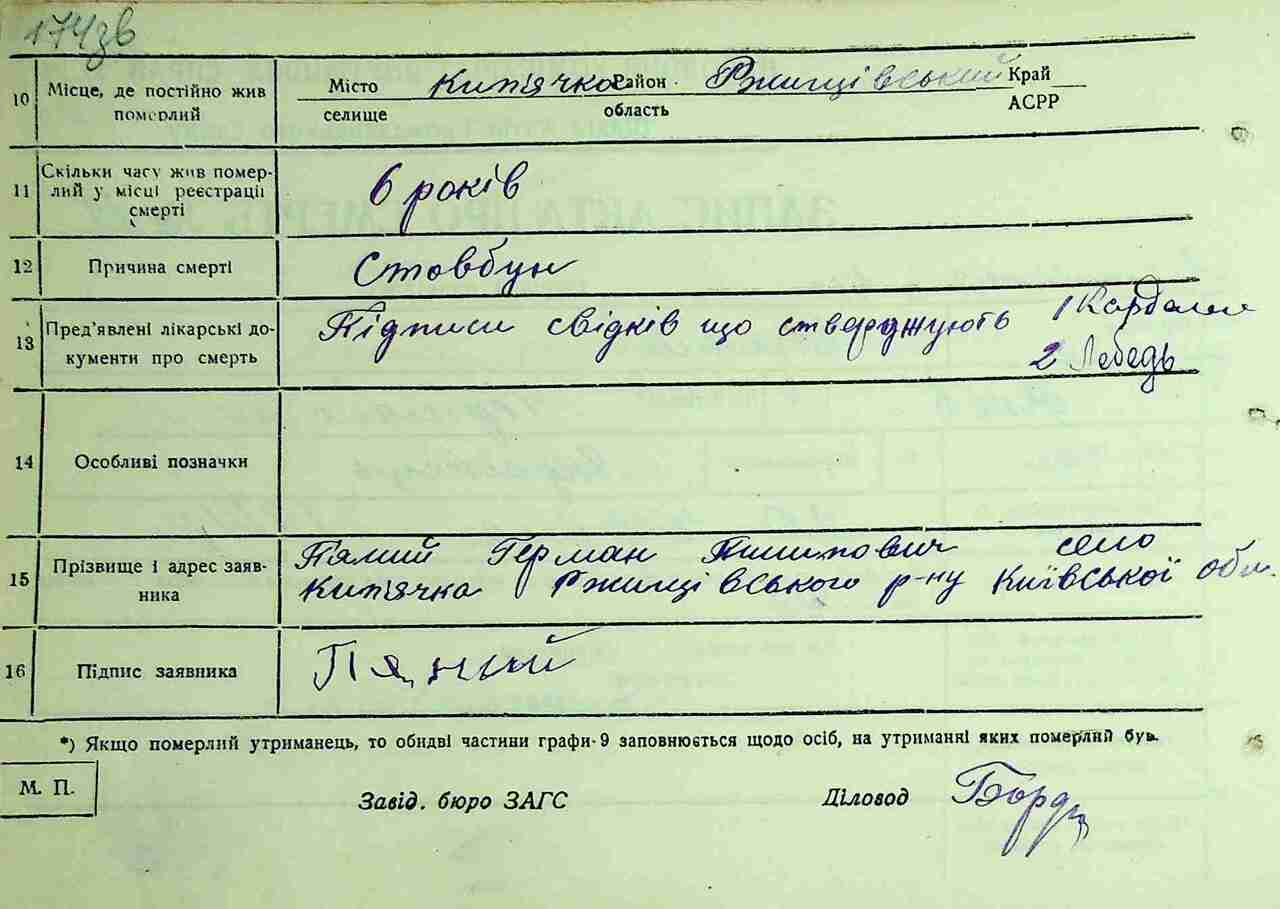 174зв
10 Місце, де постійно жив Місто Кип'ячка Район Ржищівський Край
померлий селище область АСРР
11 Скільки часу жив помер-
лий у місці реєстрації 6 років
смерті
12 Причина смерті Стовбун
13 Пред'явлені лікарські до- Підписи свідків що стверджують 1
кументи про смерть 2 Лебедь
14 Особливі позначки
15 Прізвище і адрес заяв- Герман Пилипович село
ника Кип'ячка Ржищівського р-ну Київської обл.
16 Підпис заявника
*) Якщо померлий утриманець, то обидві частини графи-9 заповнюється щодо осіб, на утриманні яких померлий був.
М. П.
Завід. бюро ЗАГС Діловод